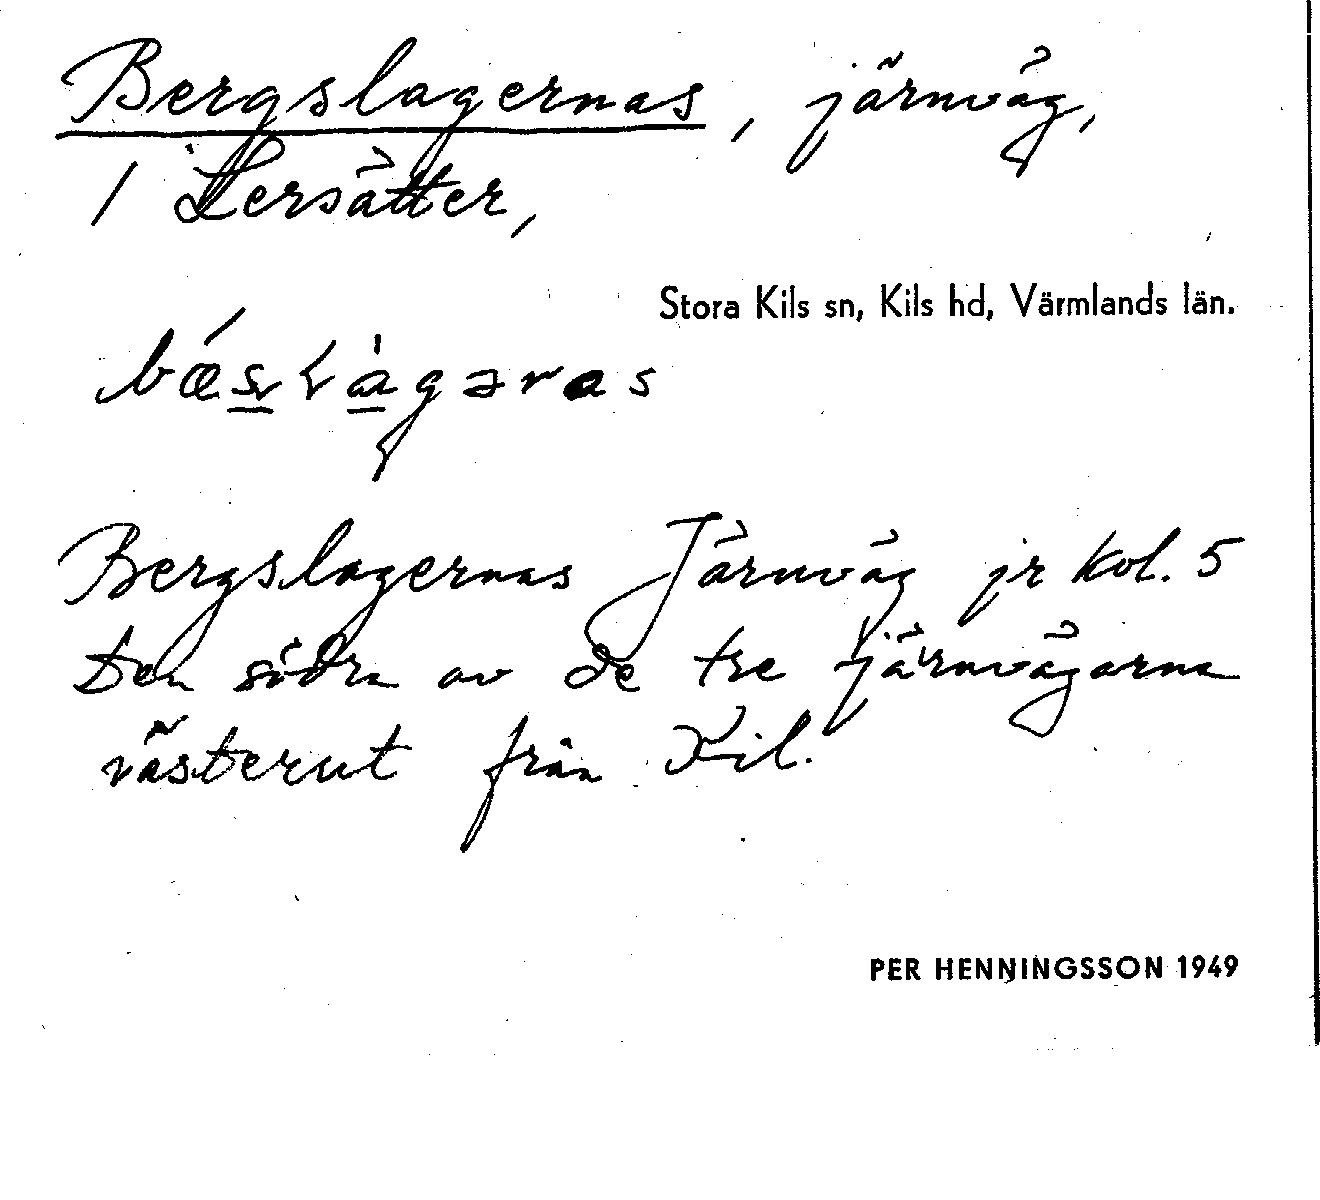 Bergslagernas, järnväg,
/ Lersätter,
Stora Kils sn, Kils hd, Värmlands län.
Bergslagernas Järnväg jr kol. 5
Den södra av de tre järnvägarna
västerut från Kil.
PER HENNINGSSON 1949